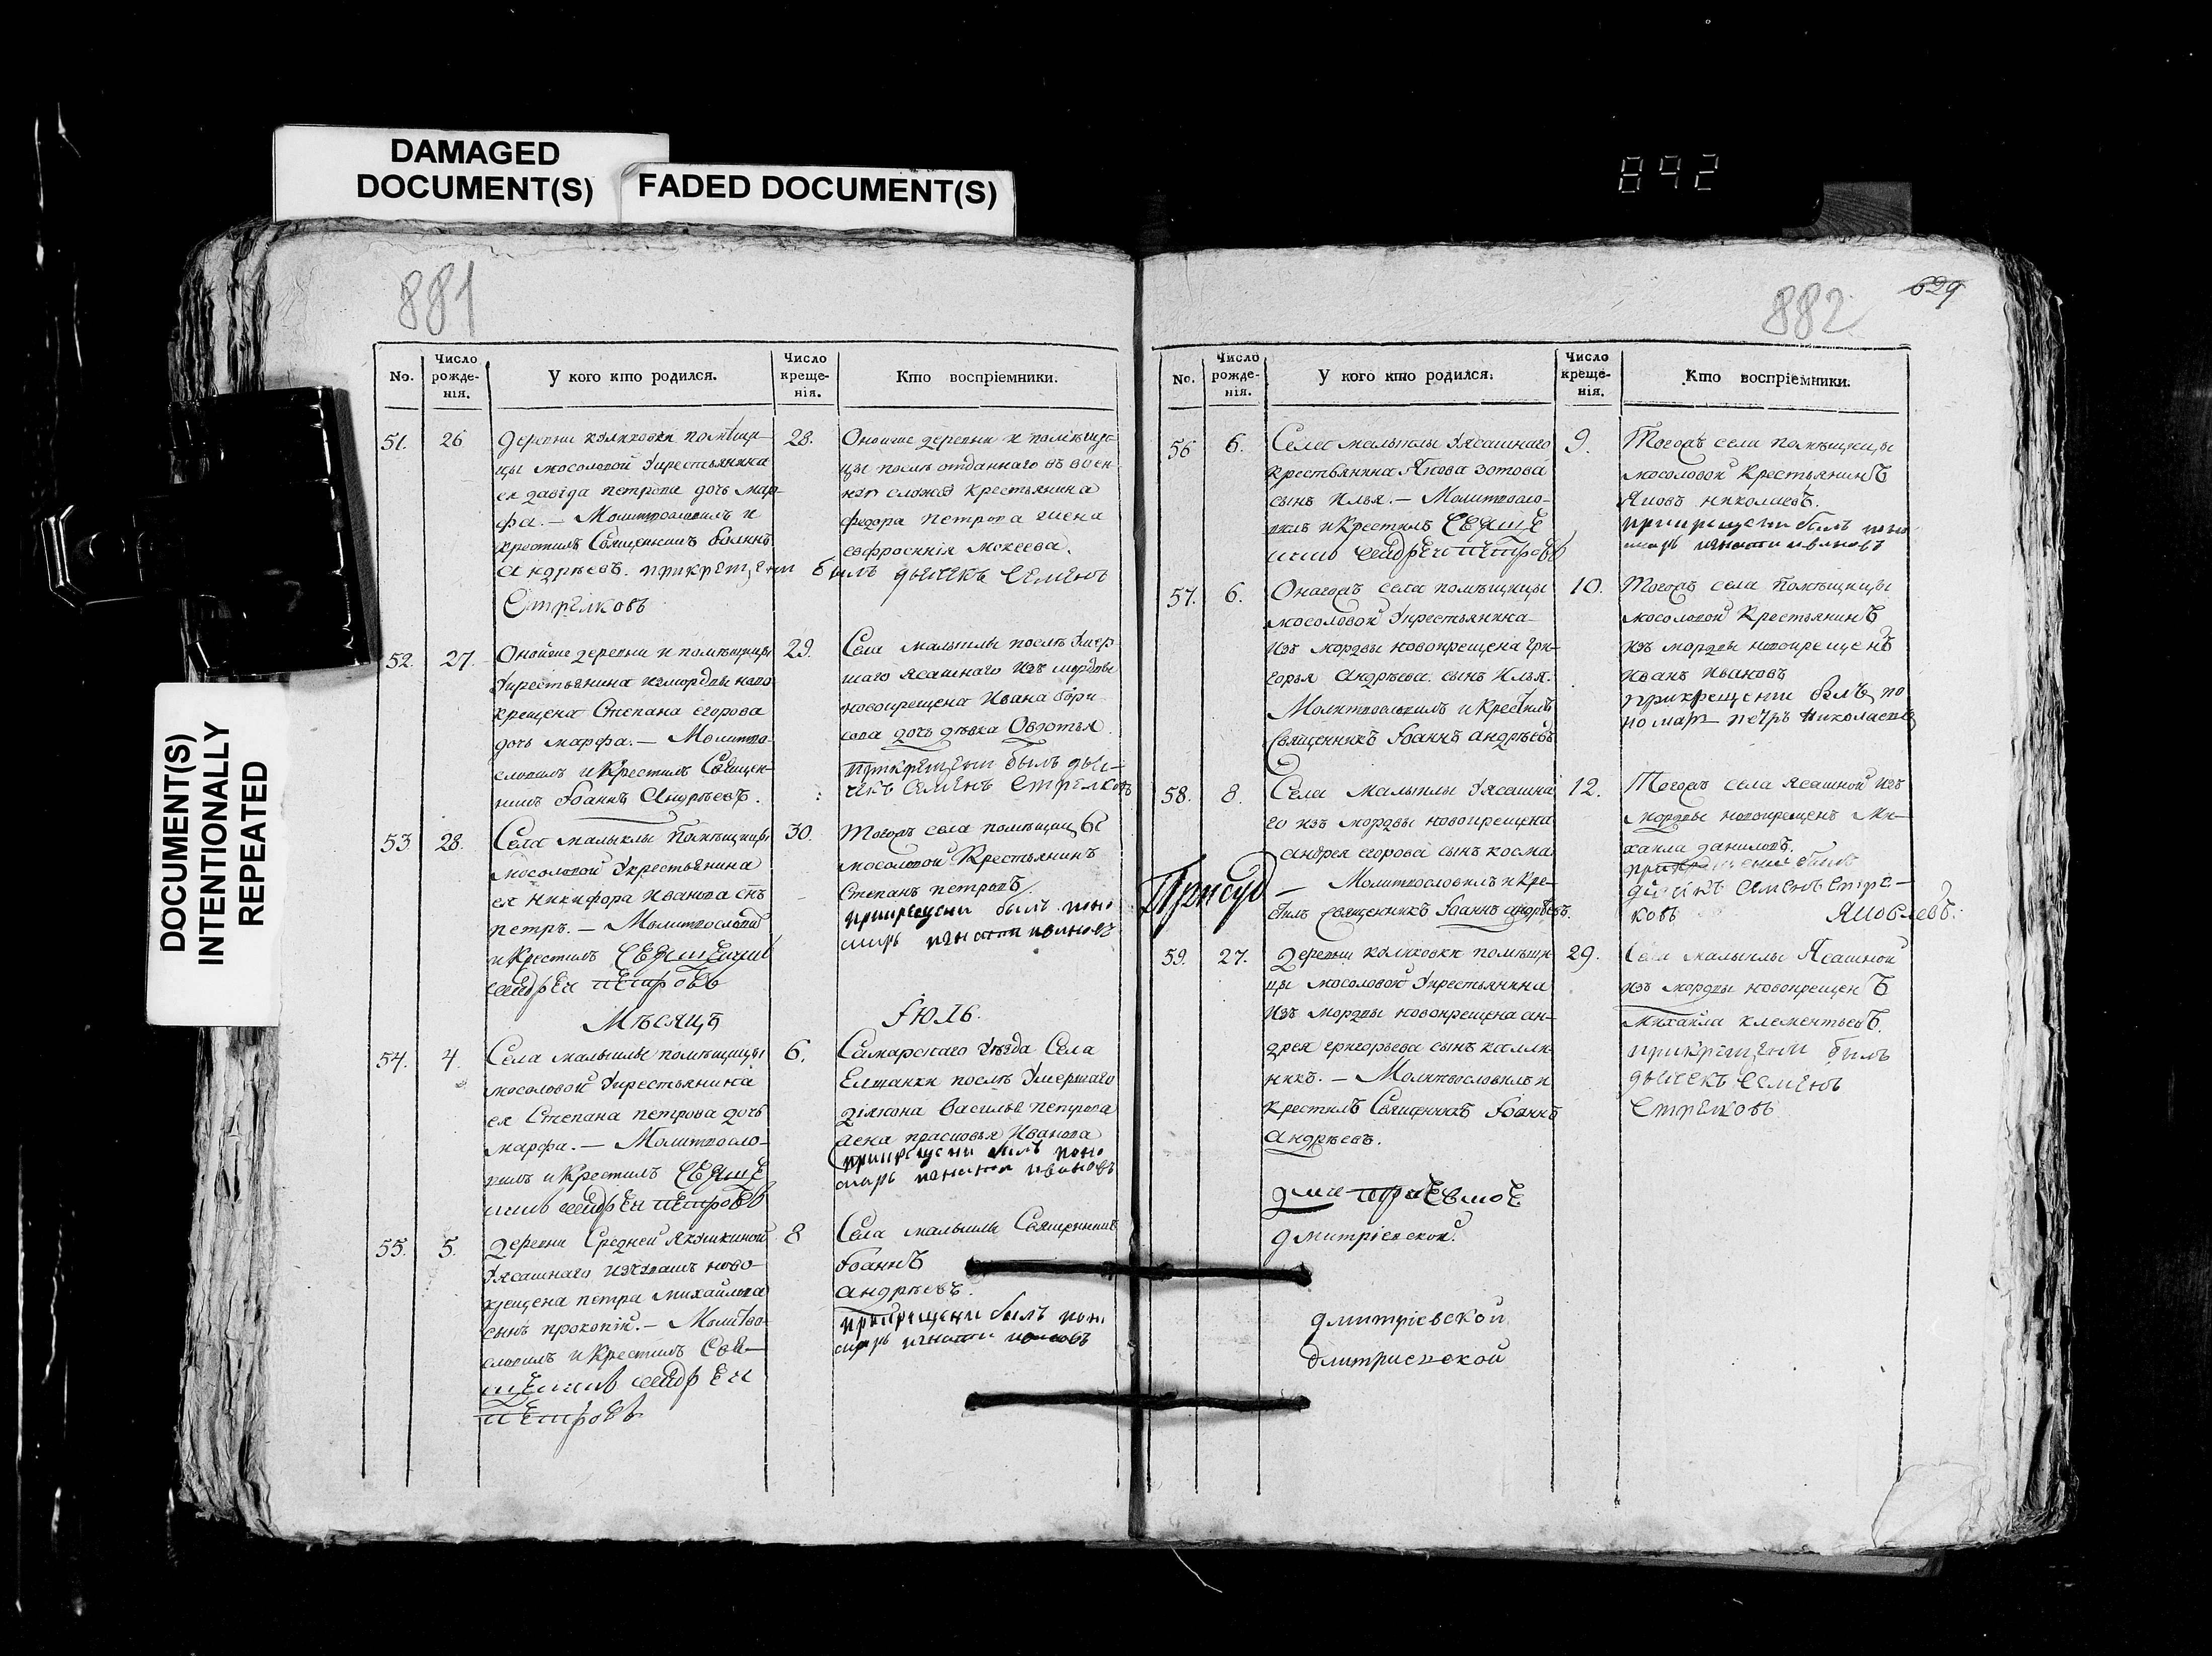 DAMAGED
DOCUMENT(S)
FADED DOCUMENT(S)
892
DOCUMENT(S)
INTENTIONALLY
REPEATED
881
No.
Число
рожде-
нія.
У кого кто родился.
Число
креще-
нія.
Кто воспріемники.
51.
26
деревни
помѣщи-
цы мосоловой Укрестьянина
ея давіда петрова дочь мар-
фа. — Молитвословилъ и
крестилъ Священникъ Іоаннъ
Андрѣевъ. прикрещени былъ дьячекъ Семенъ
Стрелковъ
28.
Оноиже деревни и помѣщи-
цы послѣ отданнаго въ воен-
крестьянина
федора петрова жена
евфросинія мокеева.
52.
27.
Оноиже деревни и помѣщицы
Укрестьянина измордвы ново
крещена Степана егорова
дочь марфа. — Молитво-
словилъ и Крестилъ Священ-
никъ Іоаннъ Андрѣевъ.
29.
Села малыклы послѣ Умер
шаго ясашнаго изъ мордвы
новокрещена Ивана бори-
сова дочь дѣвка Овдотья.
прикрещени былъ дья-
чекъ Семенъ Стрелковъ
53
28.
Села малыклы Помѣщицы
мосоловой Укрестьянина
ея Никифора Иванова снъ
петръ. — Молитвословилъ
и Крестилъ Священникъ
Андрей Петровъ
30.
Тогожъ села помѣщицы
мосоловой Крестьянинъ
Степанъ петровъ.
прикрещени былъ поно
марь игнати ивановъ
Мѣсяцъ
Іюль.
54.
4.
Села малыклы помѣщицы
мосоловой Укрестьянина
ея Степана петрова дочь
марфа. — Молитвосло-
вилъ и Крестилъ Свяще
никъ Андрей Петровъ
6.
Самарскаго Уѣзда Села
Елшанки послѣ Умершаго
діякона Василья петрова
жена прасковья Иванова
прикрещени былъ поно
марь игнати ивановъ
55.
5.
Деревни Средней Якушкиной
Уясашнаго изчувашъ ново-
крещена петра михайлова
сынъ прокопій. — Молитво-
словилъ и Крестилъ Свя-
щеникъ Андрей
Петровъ
8
Села малыклы Священникъ
Іоаннъ
андрѣевъ.
прикрещени былъ поно
марь игнати ивановъ
882
629
No.
Число
рожде-
нія.
У кого кто родился.
Число
креще-
нія.
Кто воспріемники.
56
6.
Села малыклы Уясашнаго
крестьянина Якова зотова
сынъ Илья. — Молитвосло-
вилъ и Крестилъ Свяще
никъ Андрей Петровъ
9.
Тогожъ села помѣщицы
мосоловой Крестьянинъ
Яковъ николаевъ.
прикрещени былъ поно
марь игнати ивановъ
57.
6.
Оногожъ села помѣщицы
мосоловой Укрестьянина
изъ мордвы новокрещена гри-
горья Андрѣева. сынъ Илья.
Молитвословилъ и Крестилъ
Священникъ Іоаннъ андрѣевъ
10.
Тогожъ села Помѣщицы
мосоловой Крестьянинъ
изъ мордвы новокрещенъ
Иванъ Ивановъ
прикрещении былъ по
номарь петръ николаевъ
58.
8.
Села Малыклы Уясашна
го изъ мордвы новокрещена
андрея егорова сынъ косма
— Молитвословилъ и Кре-
стилъ священникъ Іоаннъ андрѣевъ.
12.
Тогожъ села Ясашной изъ
мордвы новокрещенъ Ми-
хаила данилов.
прикрещении былъ
дьячекъ семенъ стрел-
ковъ
Яковлевъ.
59.
27.
Деревни помѣщи-
цы мосоловой Укрестьянина
изъ мордвы новокрещена ан-
дрея григорьева сынъ калли-
никъ. — Молитвословилъ и
крестилъ Священникъ Іоаннъ
андрѣевъ.
29.
Села малыклы Ясашной
изъ мордвы новокрещенъ
михайла клементьевъ.
прикрещени былъ
дьячекъ Семенъ
Стрелковъ
дмитриевской
дмитріевской
дмитриевской